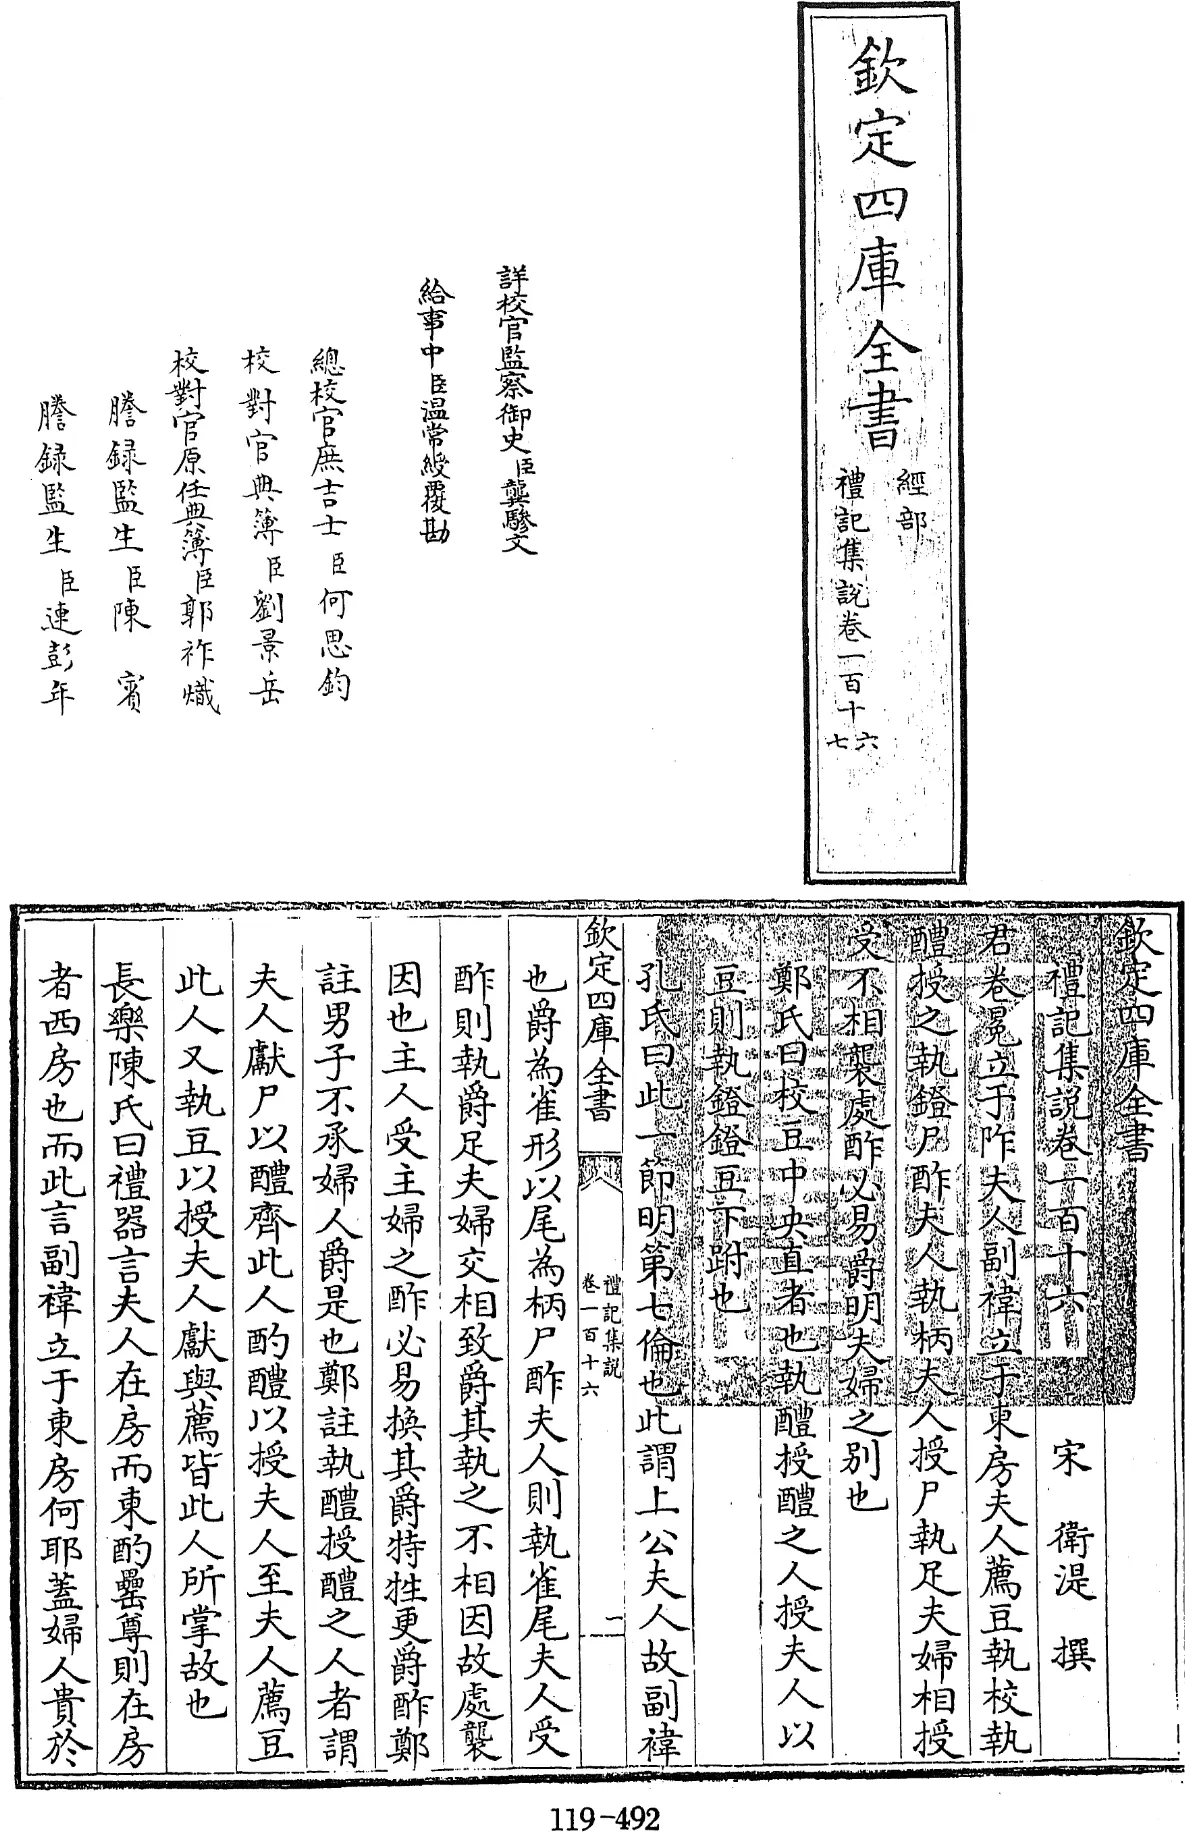 欽定四庫全書
經部
禮記集說卷一百十六
七
詳校官監察御史臣龔驂文
給事中臣温常綬覆勘
總校官庶吉士臣何思鈞
校對官典簿臣劉景岳
校對官原任典簿臣郭祚熾
謄録監生臣陳賓
謄録監生臣連彭年
欽定四庫全書
禮記集說卷一百十六
宋 衛湜 撰
君卷冕立于阼夫人副褘立于東房夫人薦豆執校執
醴授之執鐙尸酢夫人執柄夫人授尸執足夫婦相授
受不相襲處酢必易爵明夫婦之别也
鄭氏曰校豆中央直者也執醴授醴之人授夫人以
豆則執鐙鐙豆下跗也
孔氏曰此一節明第七倫也此謂上公夫人故副褘
欽定四庫全書
禮記集說
卷一百十六
一
也爵為雀形以尾為柄尸酢夫人則執雀尾夫人受
酢則執爵足夫婦交相致爵其執之不相因故處襲
因也主人受主婦之酢必易換其爵特牲更爵酢鄭
註男子不承婦人爵是也鄭註執醴授醴之人者謂
夫人獻尸以醴齊此人酌醴以授夫人至夫人薦豆
此人又執豆以授夫人獻與薦皆此人所掌故也
長樂陳氏曰禮器言夫人在房而東酌罍尊則在房
者西房也而此言副褘立于東房何耶蓋婦人貴於
119-492